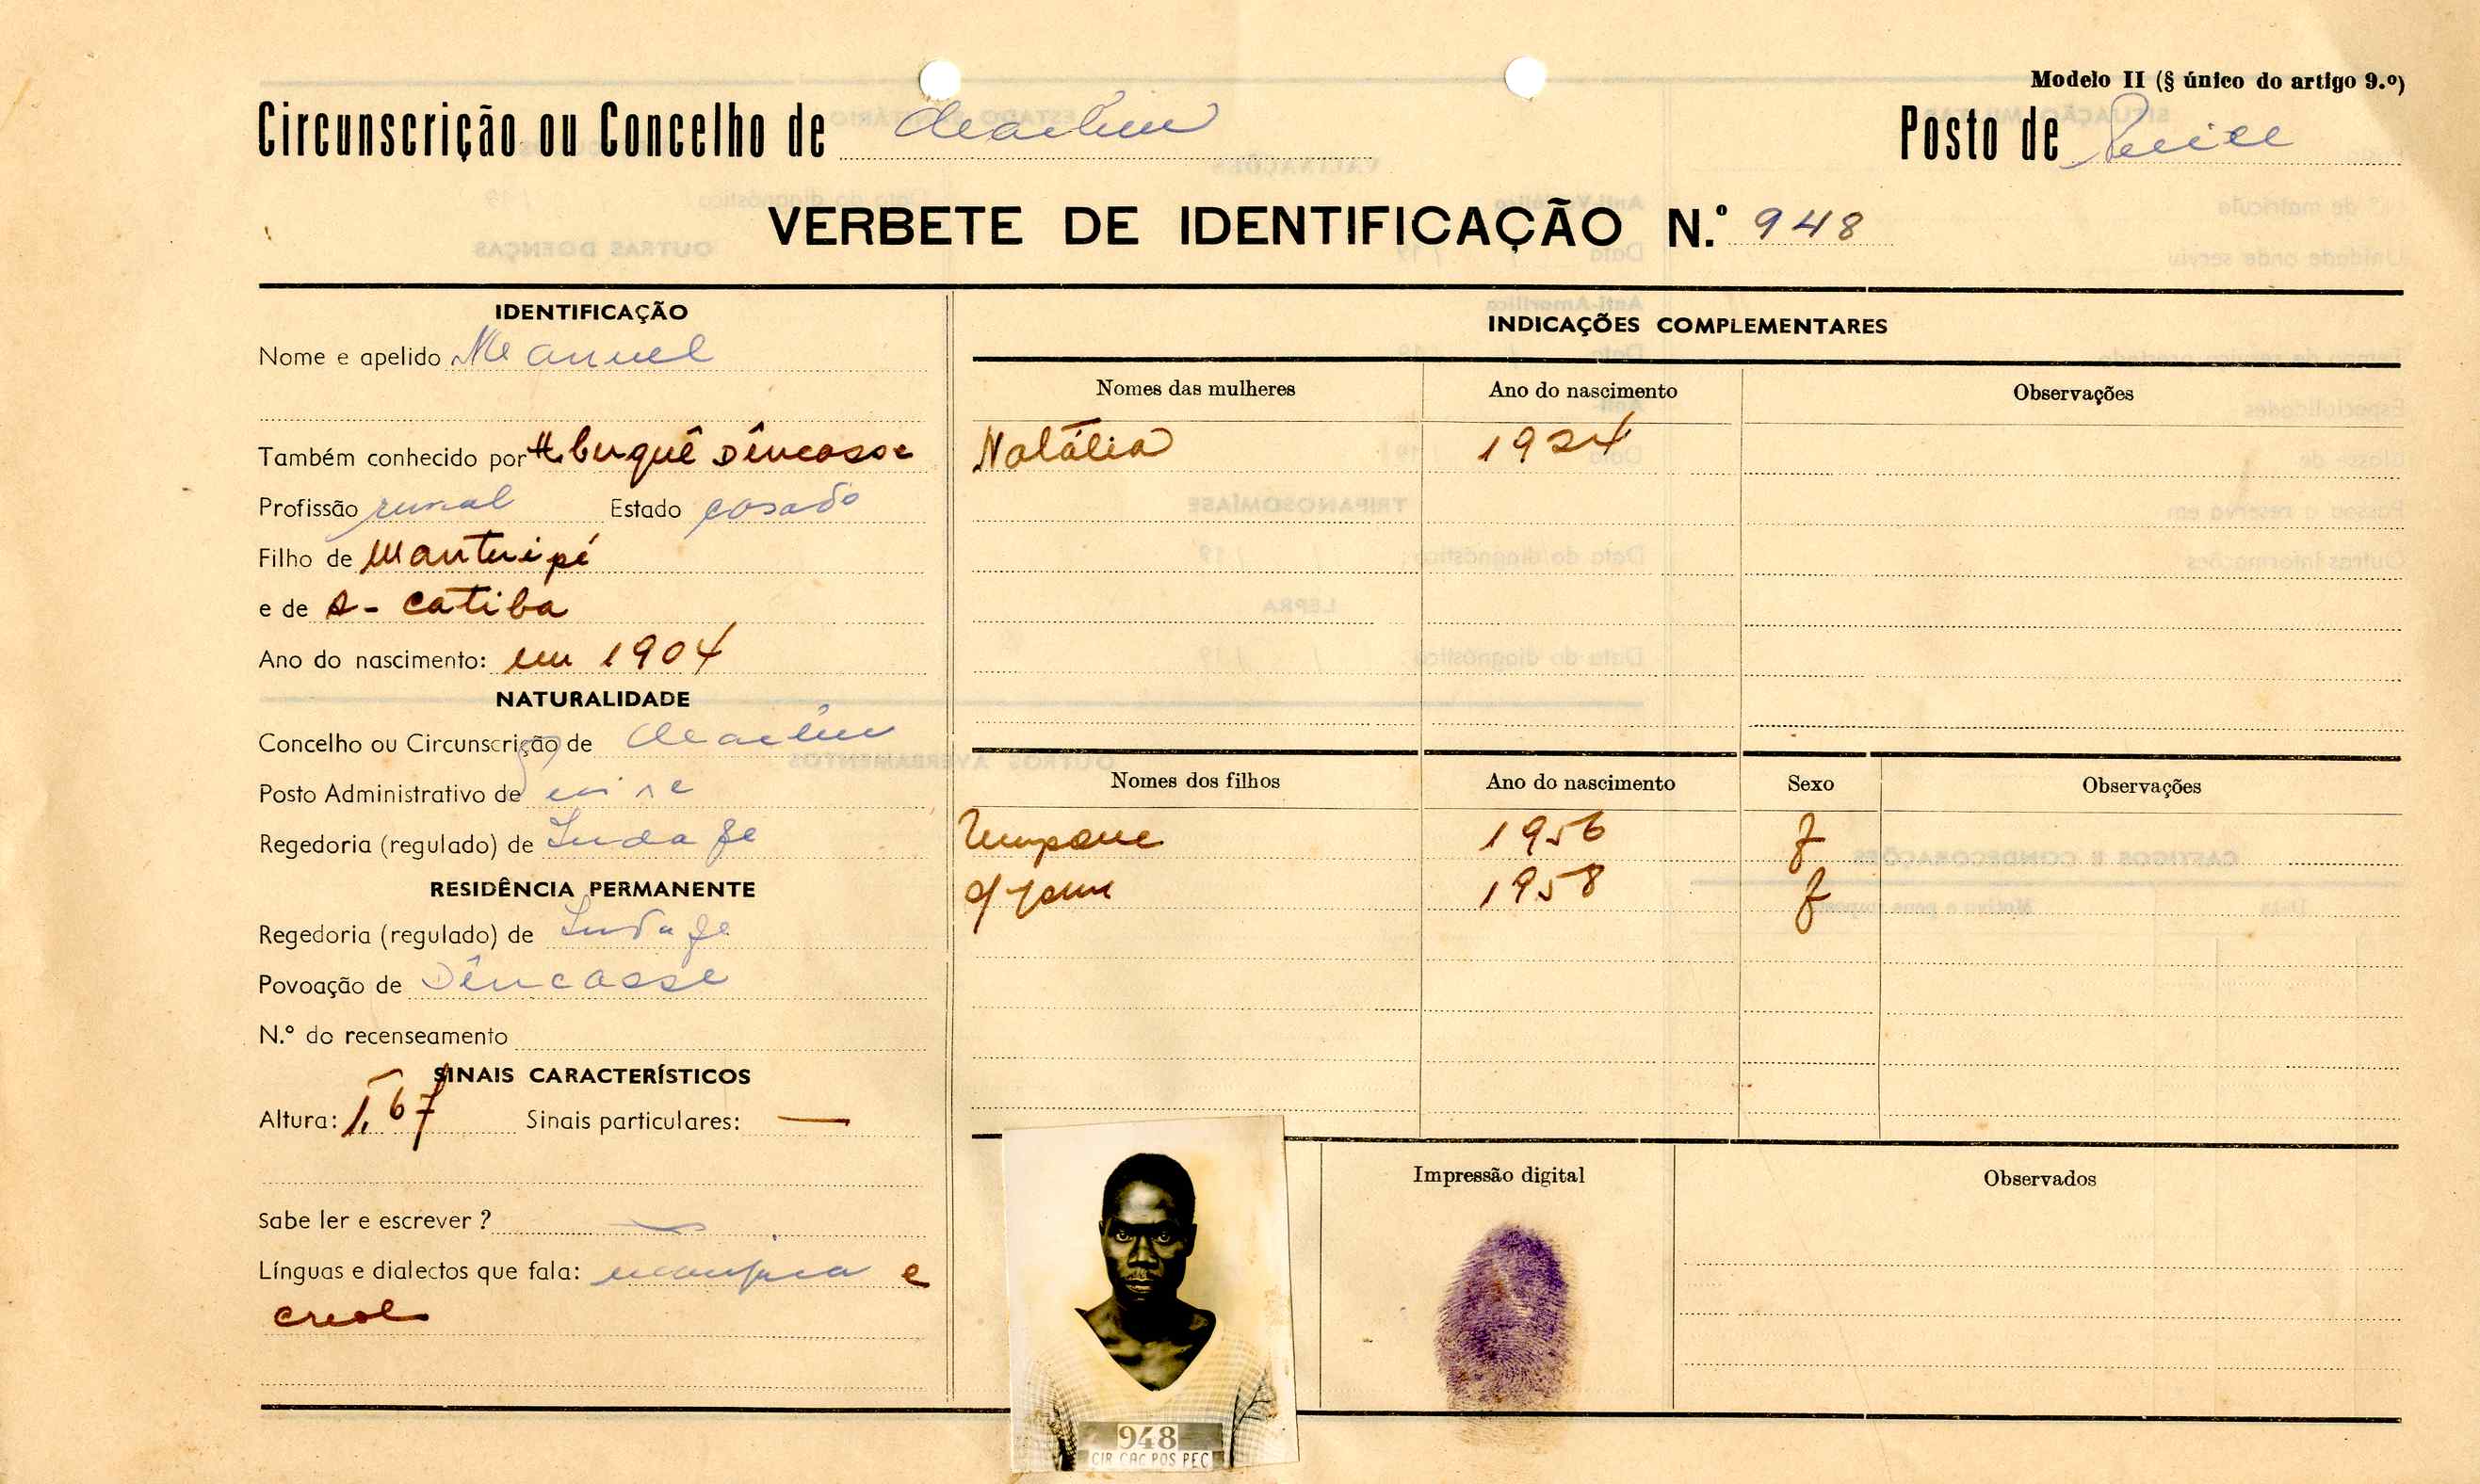 Modelo II (§ único do artigo 9.º)
Circunscrição ou Concelho de
Posto de
VERBETE DE IDENTIFICAÇÃO N.º 948
IDENTIFICAÇÃO
Nome e apelido Manuel
Também conhecido por Dêncasse
Profissão rural Estado casado
Filho de
e de A- catiba
Ano do nascimento: em 1904
NATURALIDADE
Concelho ou Circunscrição de
Posto Administrativo de
Regedoria (regulado) de
RESIDÊNCIA PERMANENTE
Regedoria (regulado) de
Povoação de Dêncasse
N.º do recenseamento
SINAIS CARACTERÍSTICOS
Altura: 1,67 Sinais particulares: —
Sabe ler e escrever ? —
Línguas e dialectos que fala: e
creol
INDICAÇÕES COMPLEMENTARES
Nomes das mulheres Ano do nascimento Observações
Natália 1924
Nomes dos filhos Ano do nascimento Sexo Observações
1956 f
1958 f
Impressão digital Observados
948
CIR CAC POS PEC